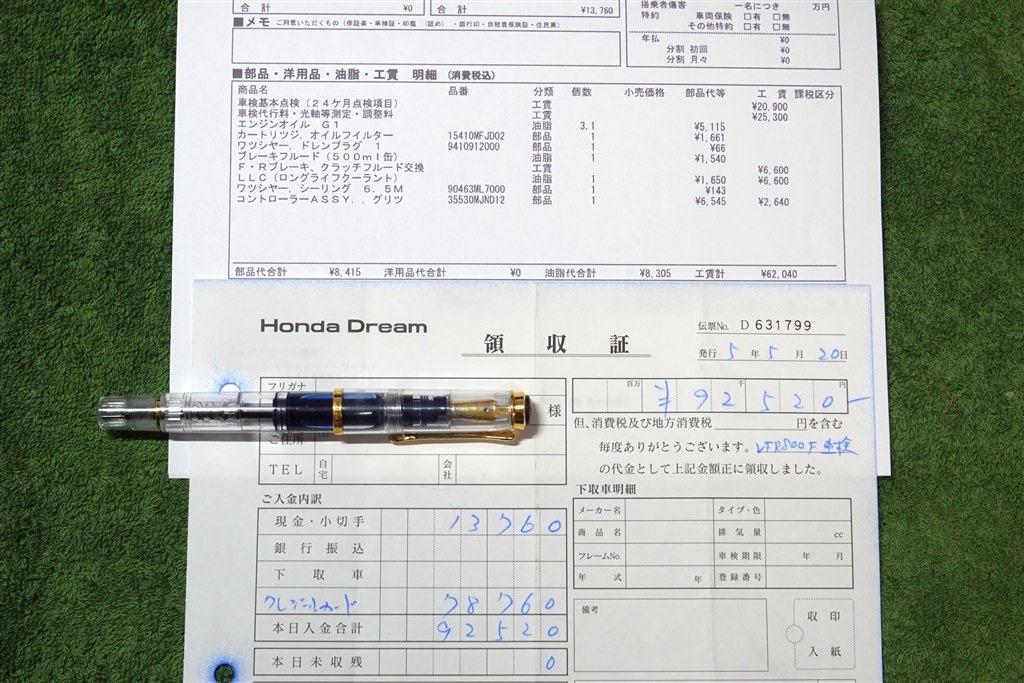 合 計 ¥0 合 計 ¥13,760
搭乗者傷害 一名につき 万円
特約 車両保険 □有 □無
その他特約 □有 □無
■メモ ご用意いただくもの（保証書・車検証・印鑑（認め）・銀行印・自賠責保険証・住民票）
年払 ¥0
分割 初回 ¥0
分割 月々 ¥0
■部品・洋用品・油脂・工賃 明細（消費税込）
商品名 品番 分類 個数 小売価格 部品代等 工 賃 課税区分
車検基本点検（２４ケ月点検項目） 工賃 ¥20,900
車検代行料・光軸等測定・調整料 工賃 ¥25,300
エンジンオイル Ｇ１ 油脂 3.1 ¥5,115
カートリツジ，オイルフイルター 15410MFJD02 部品 1 ¥1,661
ワツシヤー，ドレンプラグ １ 9410912000 部品 1 ¥66
ブレーキフルード（５００ｍｌ缶） 油脂 1 ¥1,540
Ｆ・Ｒブレーキ、クラッチフルード交換 工賃 ¥6,600
ＬＬＣ（ロングライフクーラント） 油脂 1 ¥1,650 ¥6,600
ワツシヤー，シーリング ６．５Ｍ 90463ML7000 部品 1 ¥143
コントローラーＡＳＳＹ．，グリツ 35530MJND12 部品 1 ¥6,545 ¥2,640
部品代合計 ¥8,415 洋用品代合計 ¥0 油脂代合計 ¥8,305 工賃計 ¥62,040
Honda Dream
領 収 証
伝票No. D 631799
発行 5 年 5 月 20 日
フリガナ
様
ご住所
TEL 自宅 会社
百万 千 円
¥92520－
但、消費税及び地方消費税 円を含む
毎度ありがとうございます。VFR800F 車検
の代金として上記金額正に領収しました。
ご入金内訳
現金・小切手 13760
銀行振込
下取車
クレジットカード 78760
本日入金合計 92520
本日未収残 0
下取車明細
メーカー名 タイプ・色
商品名 排気量 cc
フレームNo. 車検期限 年 月
年式 年 登録番号
備考
収 印
入 紙